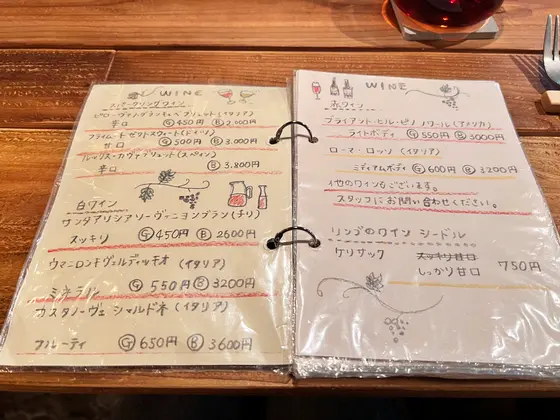 WINE
スパークリングワイン
ピローヴァノグランキュベブリュット(イタリア)
辛口 Ⓖ450円 Ⓑ2,400円
プライムート ゼクトスウィート(ドイツ)
甘口 Ⓖ500円 Ⓑ3,000円
ルックス・カヴァブリュット(スペイン)
辛口 Ⓑ3,800円
白ワイン
サンタアリシアソーヴィニヨンブラン(チリ)
スッキリ Ⓖ450円 Ⓑ2600円
ウマニロンキヴェルディッキオ(イタリア)
ミネラル Ⓖ550円 Ⓑ3200円
カスタソーヴェ シャルドネ(イタリア)
フルーティ Ⓖ650円 Ⓑ3600円
WINE
赤ワイン
ブライアント・ヒル・ピノノワール(アメリカ)
ライトボディ Ⓖ550円 Ⓑ3000円
ローマ・ロッソ(イタリア)
ミディアムボディ Ⓖ600円 Ⓑ3200円
他のワインもございます。
スタッフにお問い合わせください。
リンゴのワイン シードル
ケリサック スッキリ甘口
しっかり甘口 750円